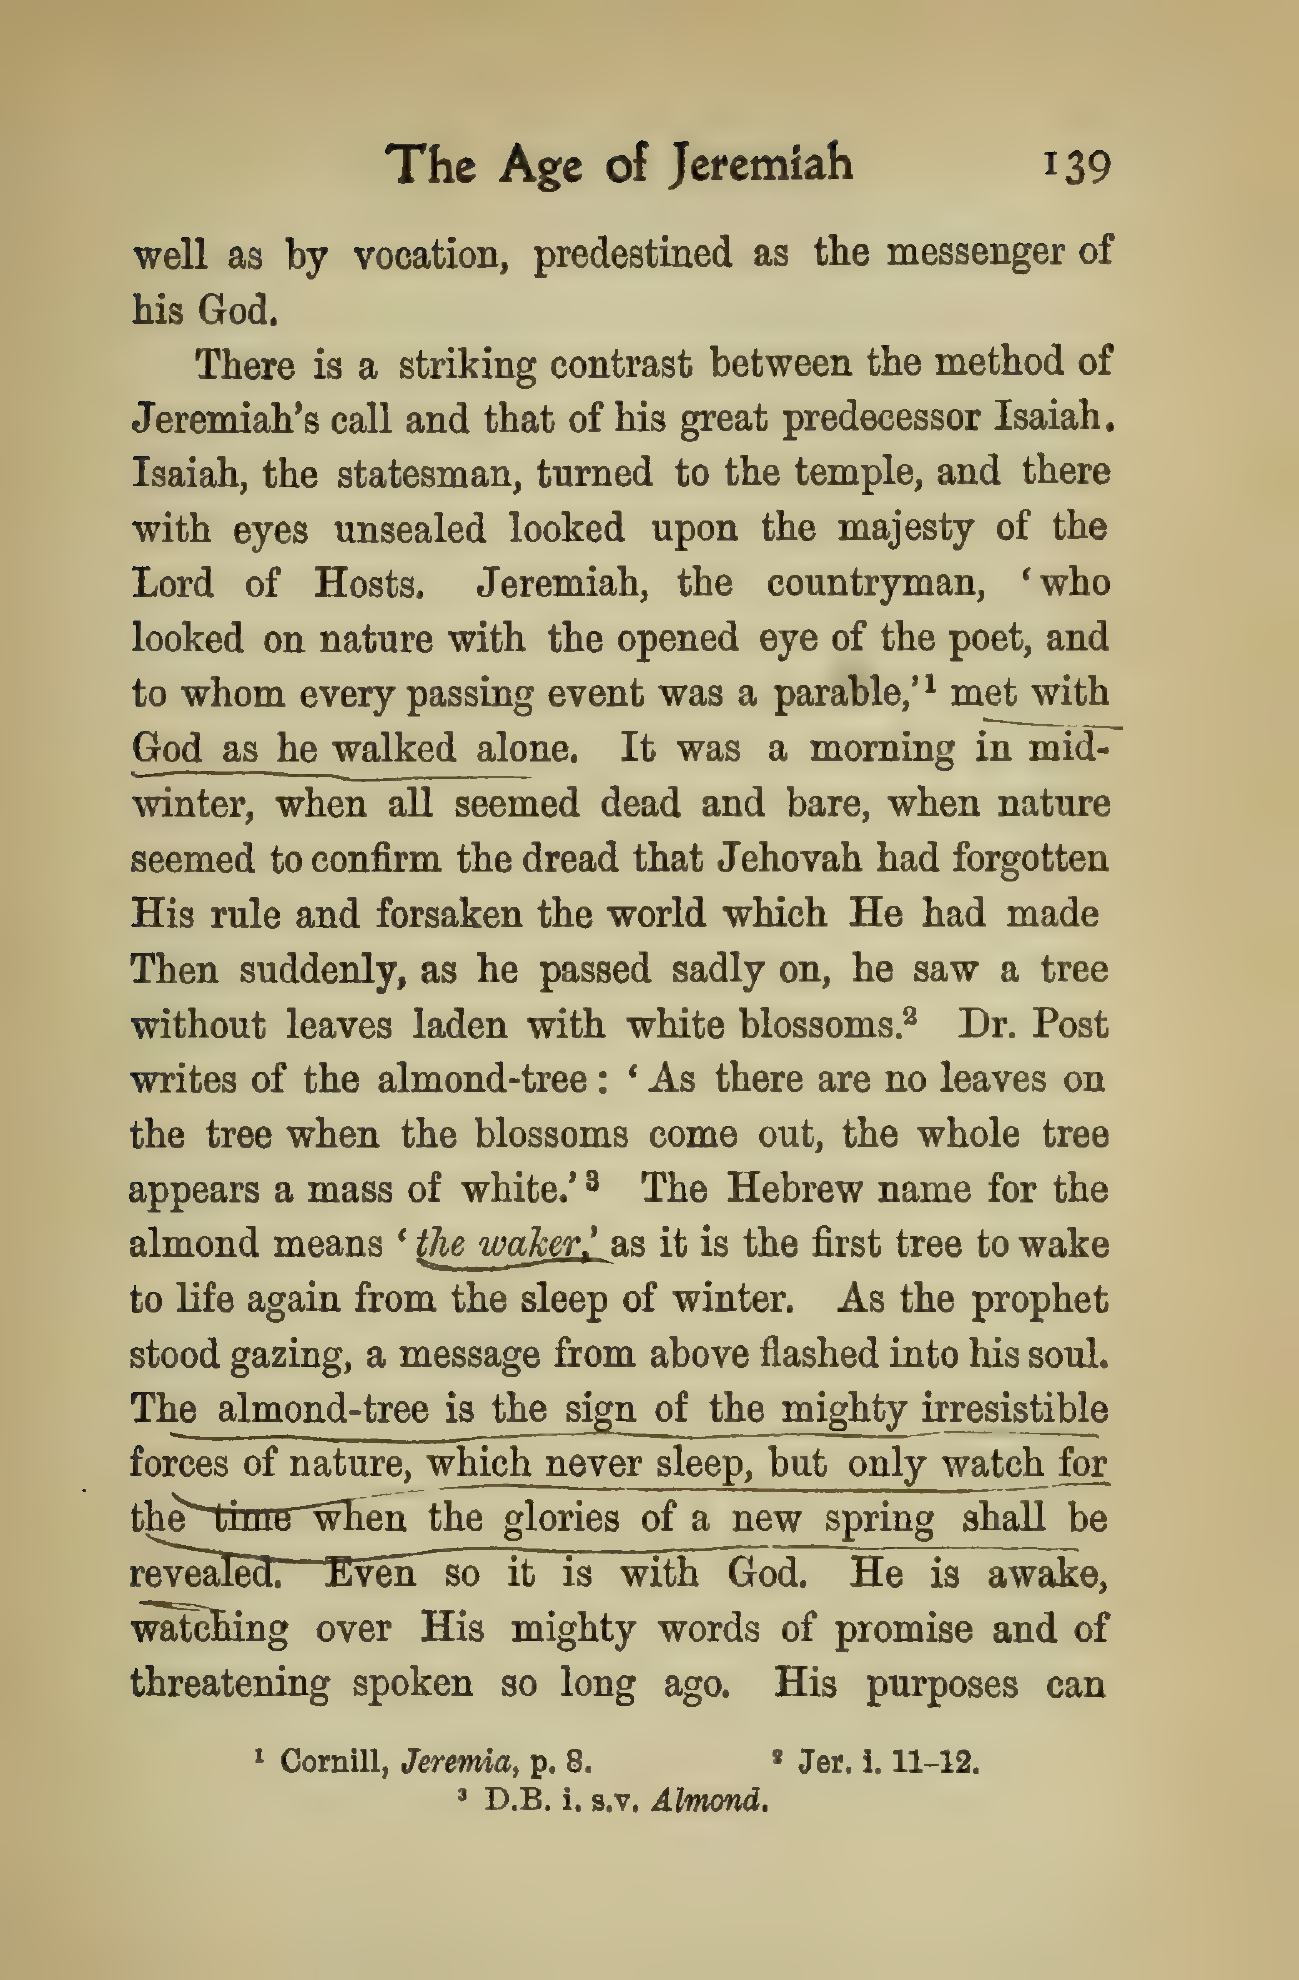 The Age of Jeremiah 139
well as by vocation, predestined as the messenger of
his God.
There is a striking contrast between the method of
Jeremiah's call and that of his great predecessor Isaiah.
Isaiah, the statesman, turned to the temple, and there
with eyes unsealed looked upon the majesty of the
Lord of Hosts. Jeremiah, the countryman, ‘who
looked on nature with the opened eye of the poet, and
to whom every passing event was a parable,’¹ met with
God as he walked alone. It was a morning in mid-
winter, when all seemed dead and bare, when nature
seemed to confirm the dread that Jehovah had forgotten
His rule and forsaken the world which He had made
Then suddenly, as he passed sadly on, he saw a tree
without leaves laden with white blossoms.² Dr. Post
writes of the almond-tree: ‘As there are no leaves on
the tree when the blossoms come out, the whole tree
appears a mass of white.’³ The Hebrew name for the
almond means ‘the waker,’ as it is the first tree to wake
to life again from the sleep of winter. As the prophet
stood gazing, a message from above flashed into his soul.
The almond-tree is the sign of the mighty irresistible
forces of nature, which never sleep, but only watch for
the time when the glories of a new spring shall be
revealed. Even so it is with God. He is awake,
watching over His mighty words of promise and of
threatening spoken so long ago. His purposes can
¹ Cornill, Jeremia, p. 8. ² Jer. i. 11–12.
³ D.B. i. s.v. Almond.